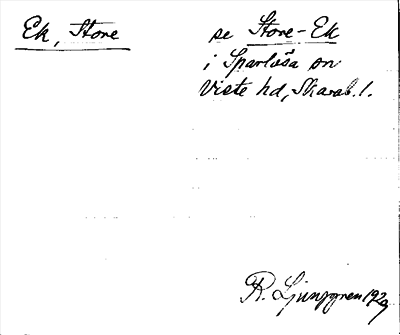 Ek, Store
se Store-Ek
i Sparlösa sn
Viste hd, Skarab. l.
R. Ljunggren 1929